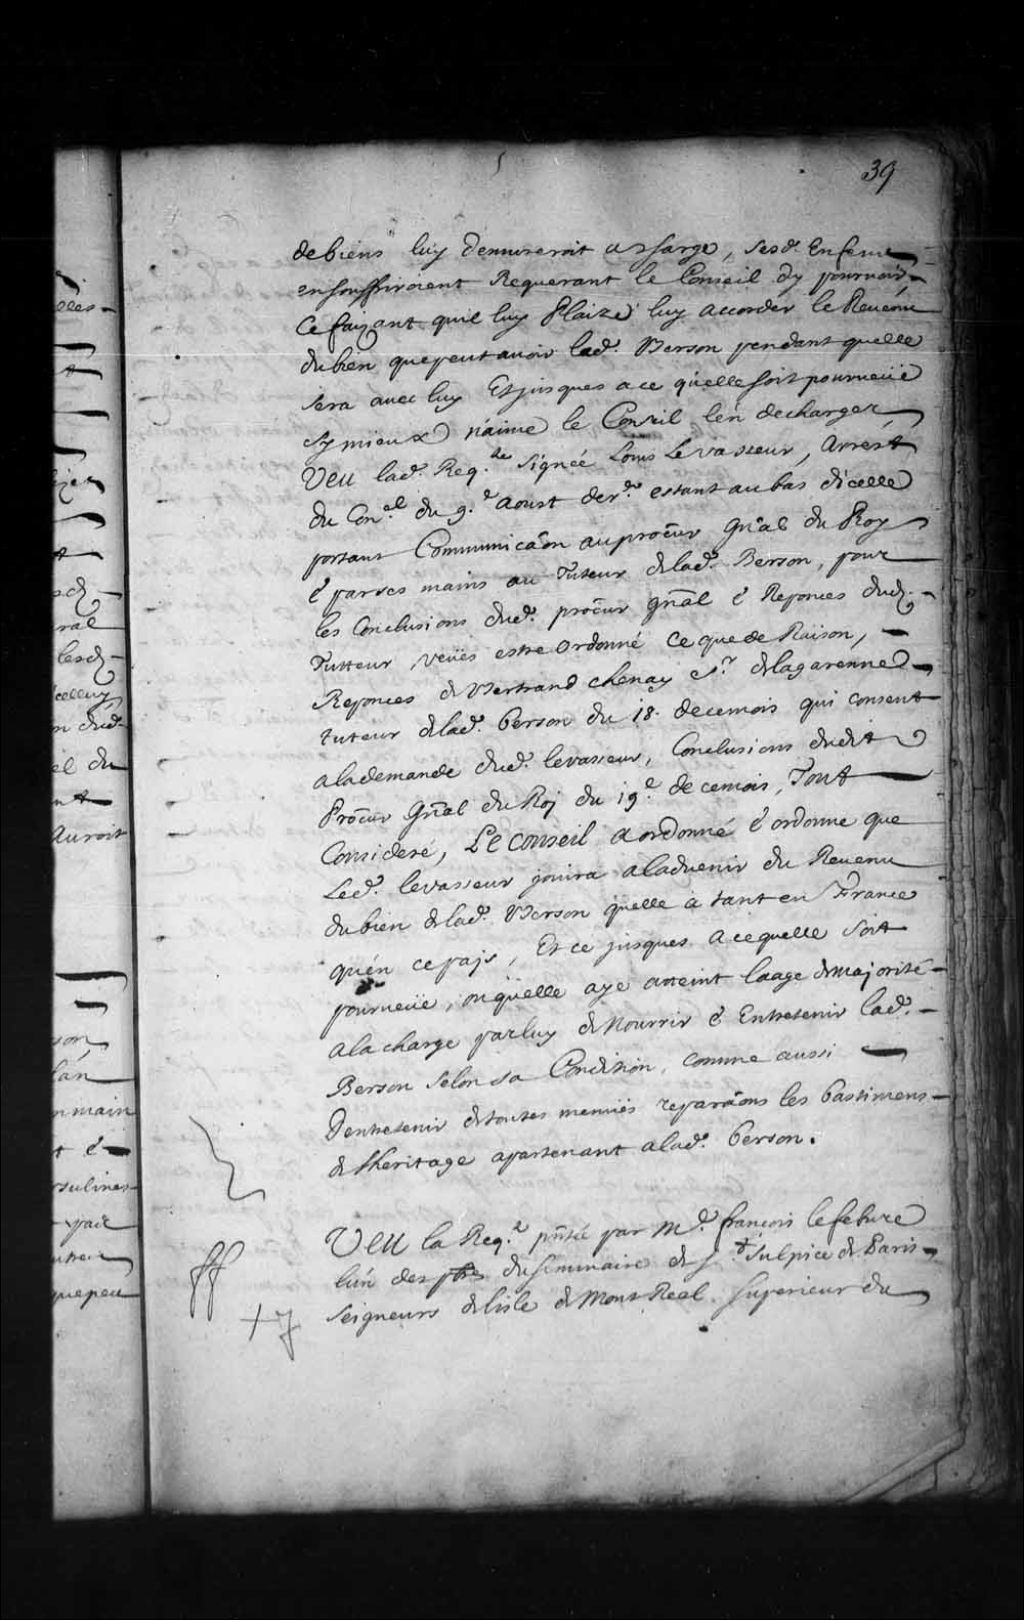 39
de biens luy demureroit a charge, sesd. Enfens
en souffriroient Requerant le Conseil dy pourvoir
Ce faizant quil luy Plaize luy accorder le Reuenu
du bien que peut auoir lad. Berson pendant quelle
sera auec luy Et jusques a ce quelle soit pourueüe
sy mieux n'aime le Conseil len decharger
Veu lad. Reqte signée Louis Levasseur, Arrest
du Conel du 9e aoust derer estant au bas dicelle
portant Communicaõn au procur gnãl du Roy
& par ses mains au Tuteur de lad. Berson, pour
les Conclusions dud. procur gnãl & Reponces dud.
Tutteur veües estre ordonné ce que de Raison,
Reponces de Bertrand chenay sr de lagarenne
tuteur de lad. berson du 18. de cemois qui consent
a la demande dud. levasseur, Conclusions dudit
Procur Gnãl du Roj du 19e de cemois, Tout
Consideré, Le Conseil a ordonné & ordonne que
Led. levasseur jouira a laduenir du Reuenu
du bien de lad. Berson quelle à tant en France
quén ce pajs, Et ce jusques a ce quelle soit
pourueüe, ou qüelle aye atteint laage de majorité
a la charge par luy de Nourrir & Entretenir lad.
Berson selon sa Condition, comme aussi
Dentretenir de toutes menües reparaõns les bastimens
de lheritage apartenant a lad. berson.
Veu la Reqe pñtée par Me francois lefebure
lún des pbres du seminaire de St Sulpice de Paris
seigneurs de lisle de Mont Real superieur du